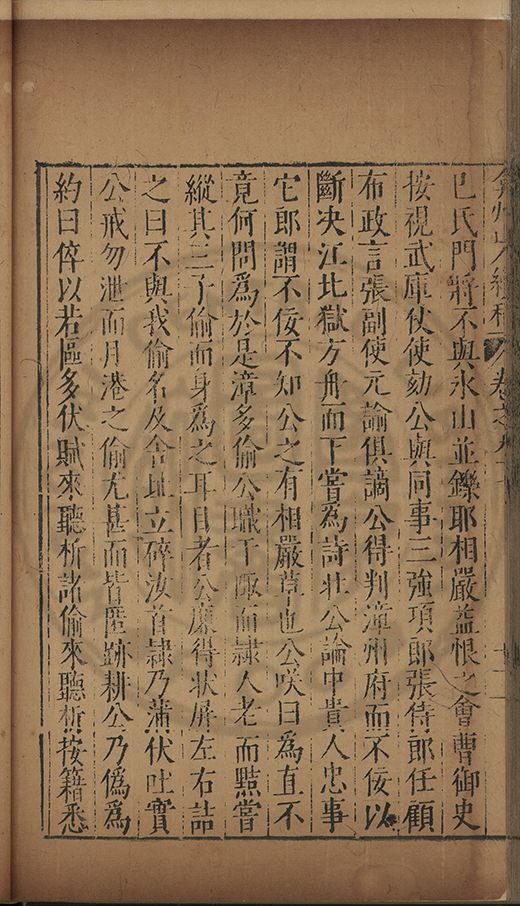 弇州山人續稿 卷之九十
巳氏門將不與氷山並鑠耶相嚴益恨之會曹御史
按視武庫仗使劾公與同事三強項郎張侍郎任顧
布政言張副使元諭俱謫公得判漳州府而不佞以
斷决江北獄方舟而下嘗為詩壮公論中貴人忠事
它郎謂不佞不知公之有相嚴草也公咲曰為直不
竟何問爲於是漳多偷公職干陬而隷人老而黠嘗
縱其三子偷而身爲之耳目者公廉得状屏左右詰
之曰不與我偷名及舎址立碎汝首隷乃蒲伏吐實
公戒勿泄而月港之偷尤甚而皆匿跡耕公乃偽為
約曰倅以若區多伏賦來聽析諸偷來聽析按籍悉